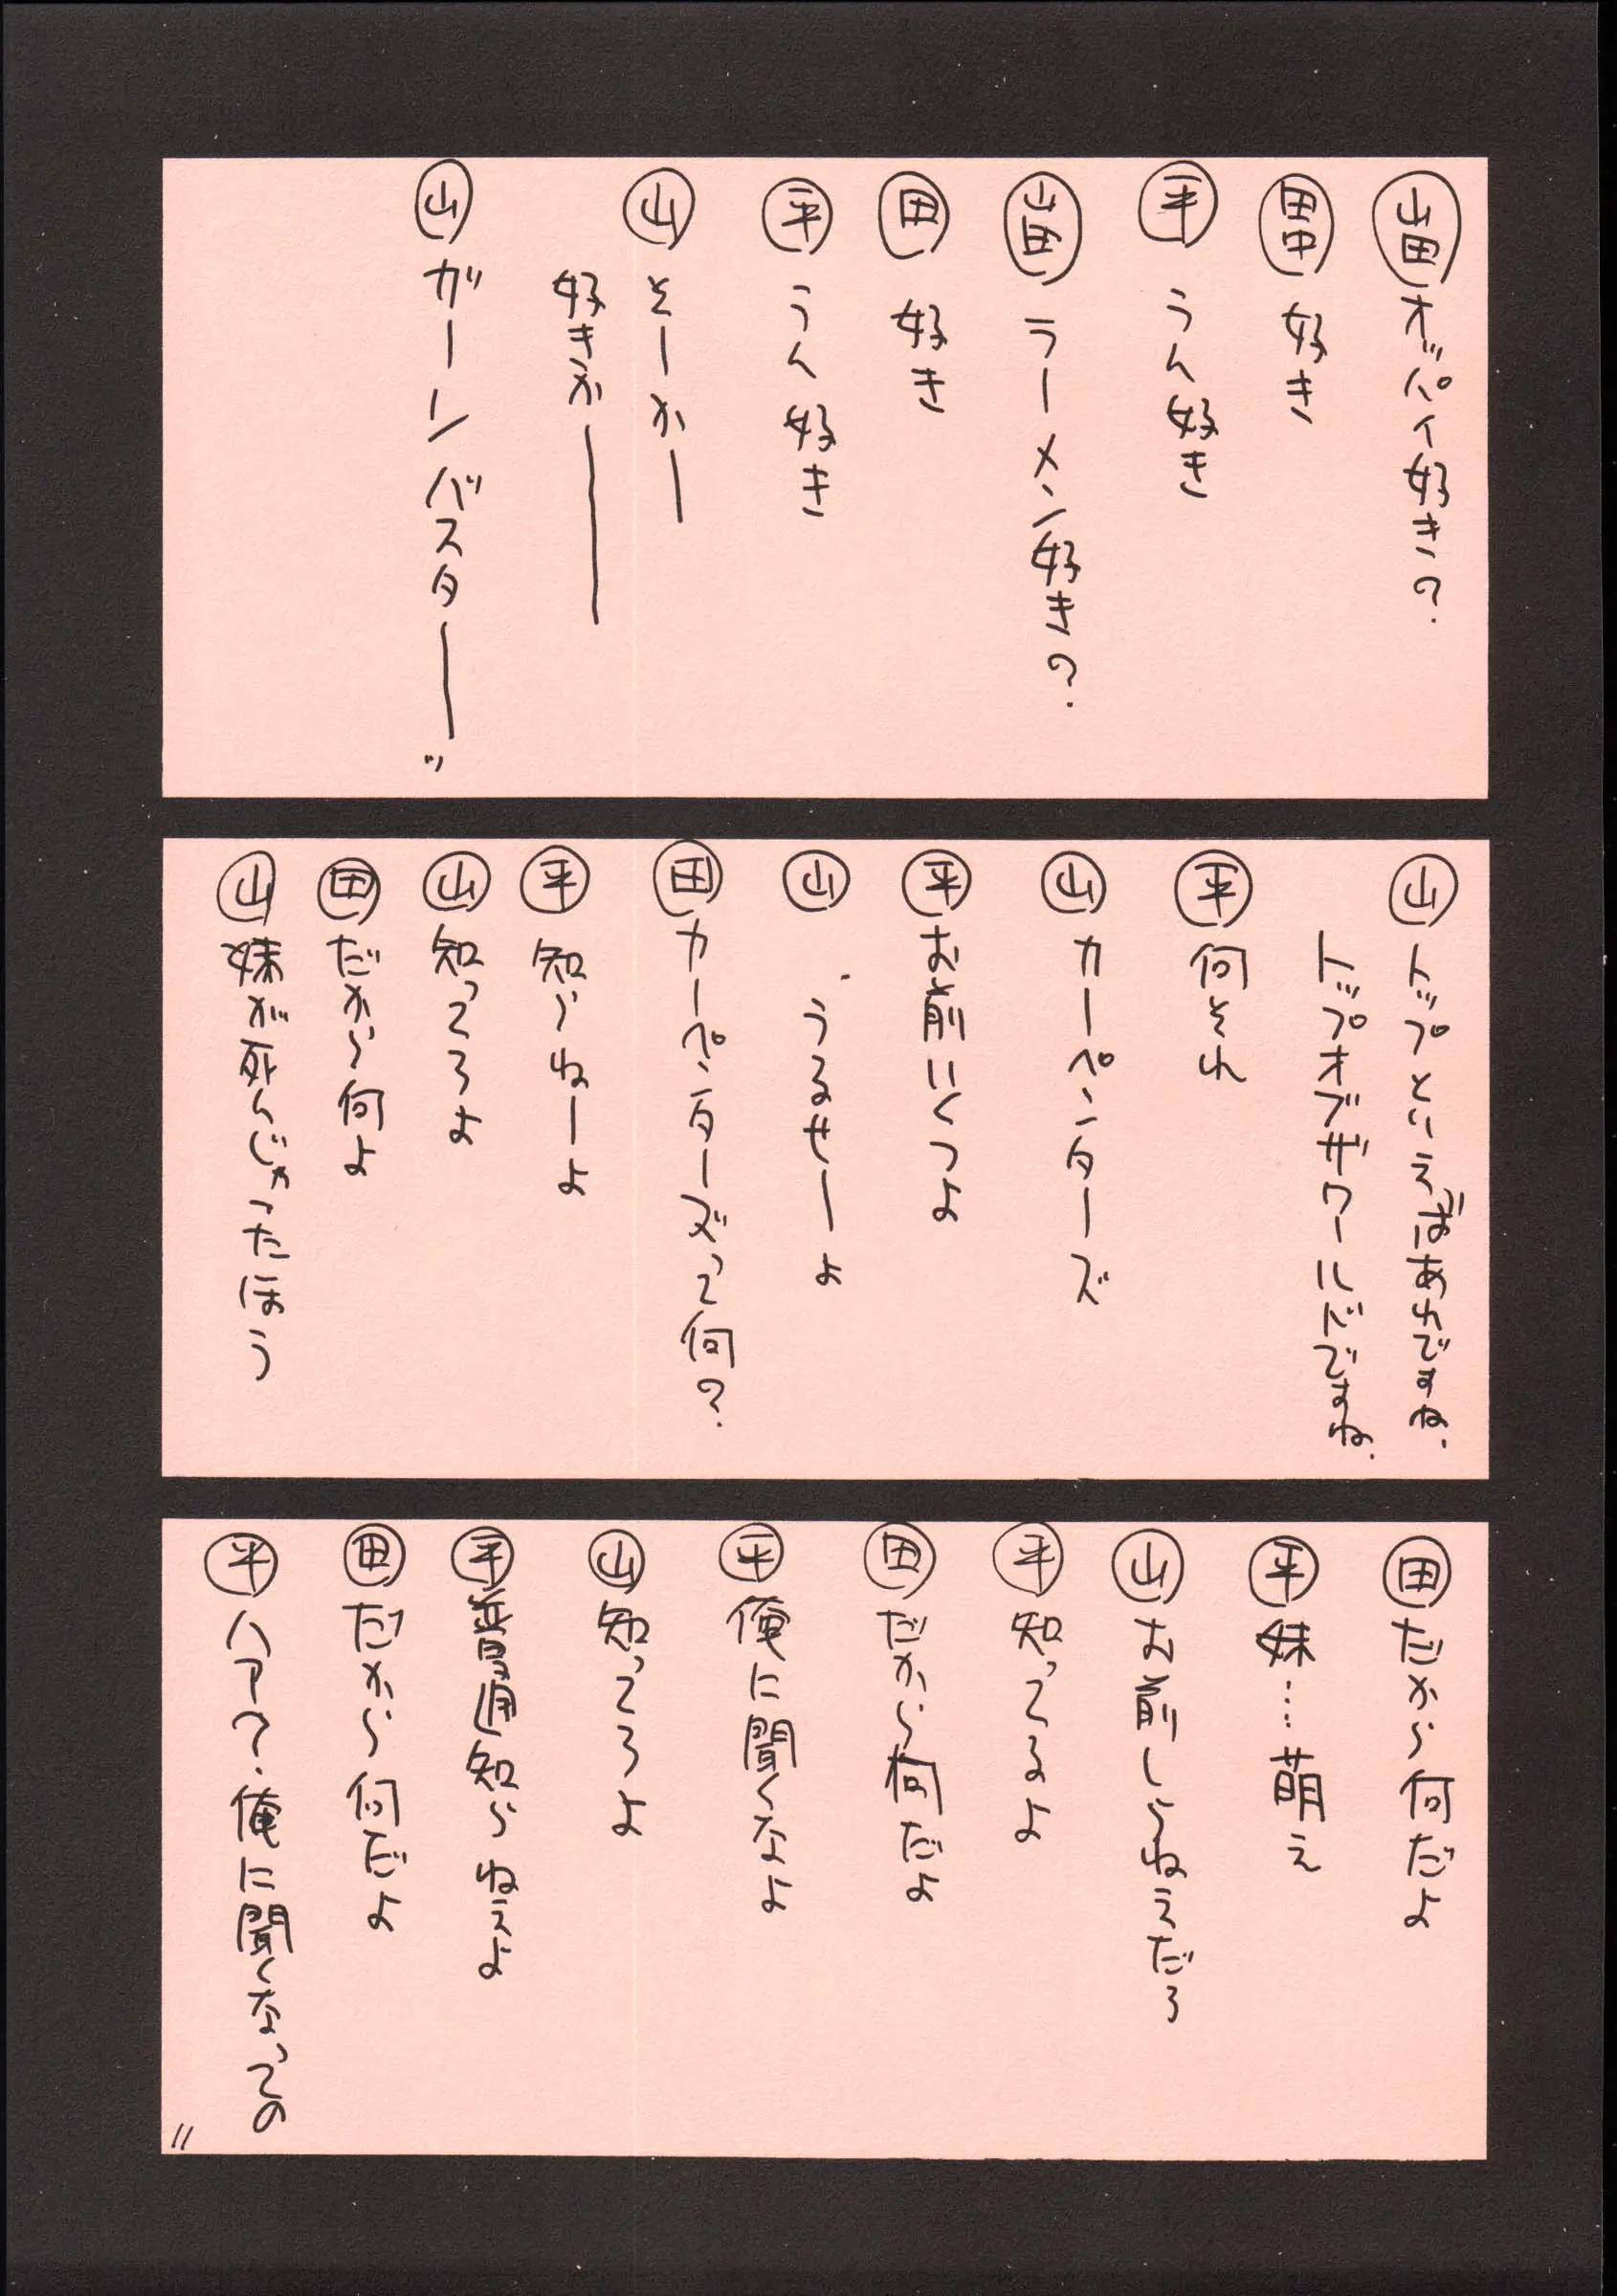 山田 オッパイ好き？
田中 好き
平 うん好き
山田 ラーメン好き？
田 好き
平 うん好き
山 そーかー
好きかー
山 ガーンバスターーッ
山 トップといえばあれですね.
トップオブザワールドですね.
平 何それ
山 カーペンターズ
平 お前いくつよ
山 うるせーよ
田 カーペンターズって何？
平 知らねーよ
山 知ってろよ
田 だから何よ
山 妹が死んじゃったほう
田 だから何だよ
平 妹……萌え
山 お前しらねえだろ
平 知ってるよ
田 だから何だよ
平 俺に聞くなよ
山 知ってろよ
平 普通知らねえよ
田 だから何だよ
平 ハア？俺に聞くなっての
11